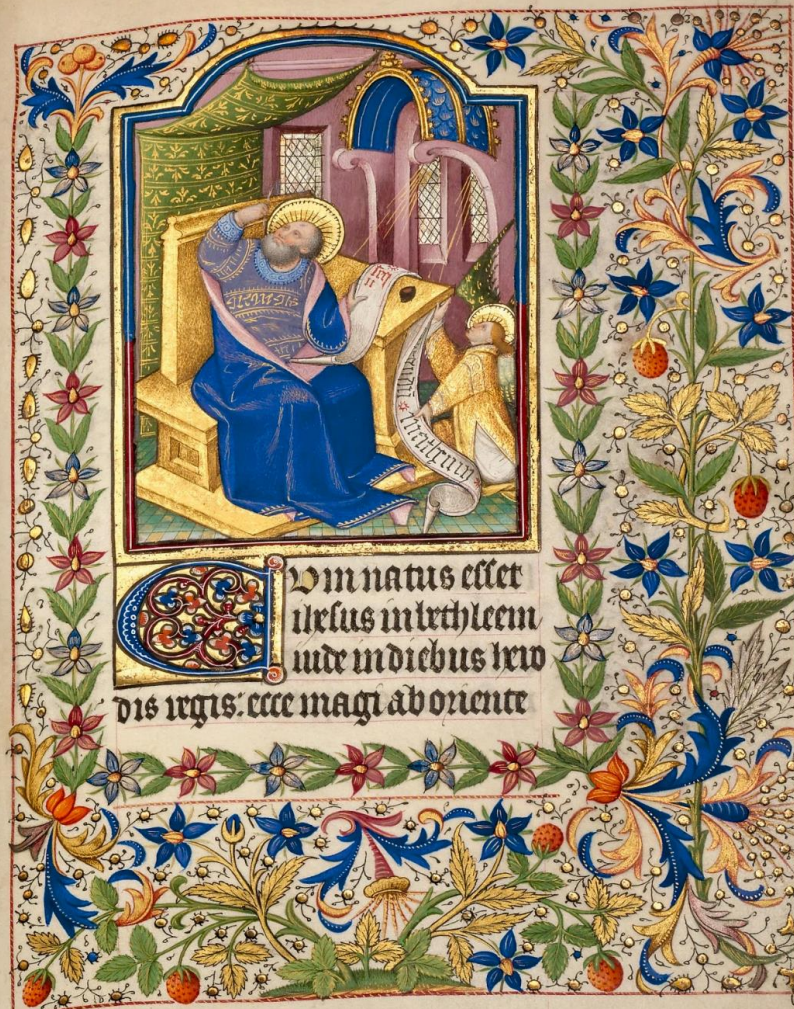 Cum natus esset
ihesus in bethleem
iude in diebus hero
dis regis: ecce magi ab oriente